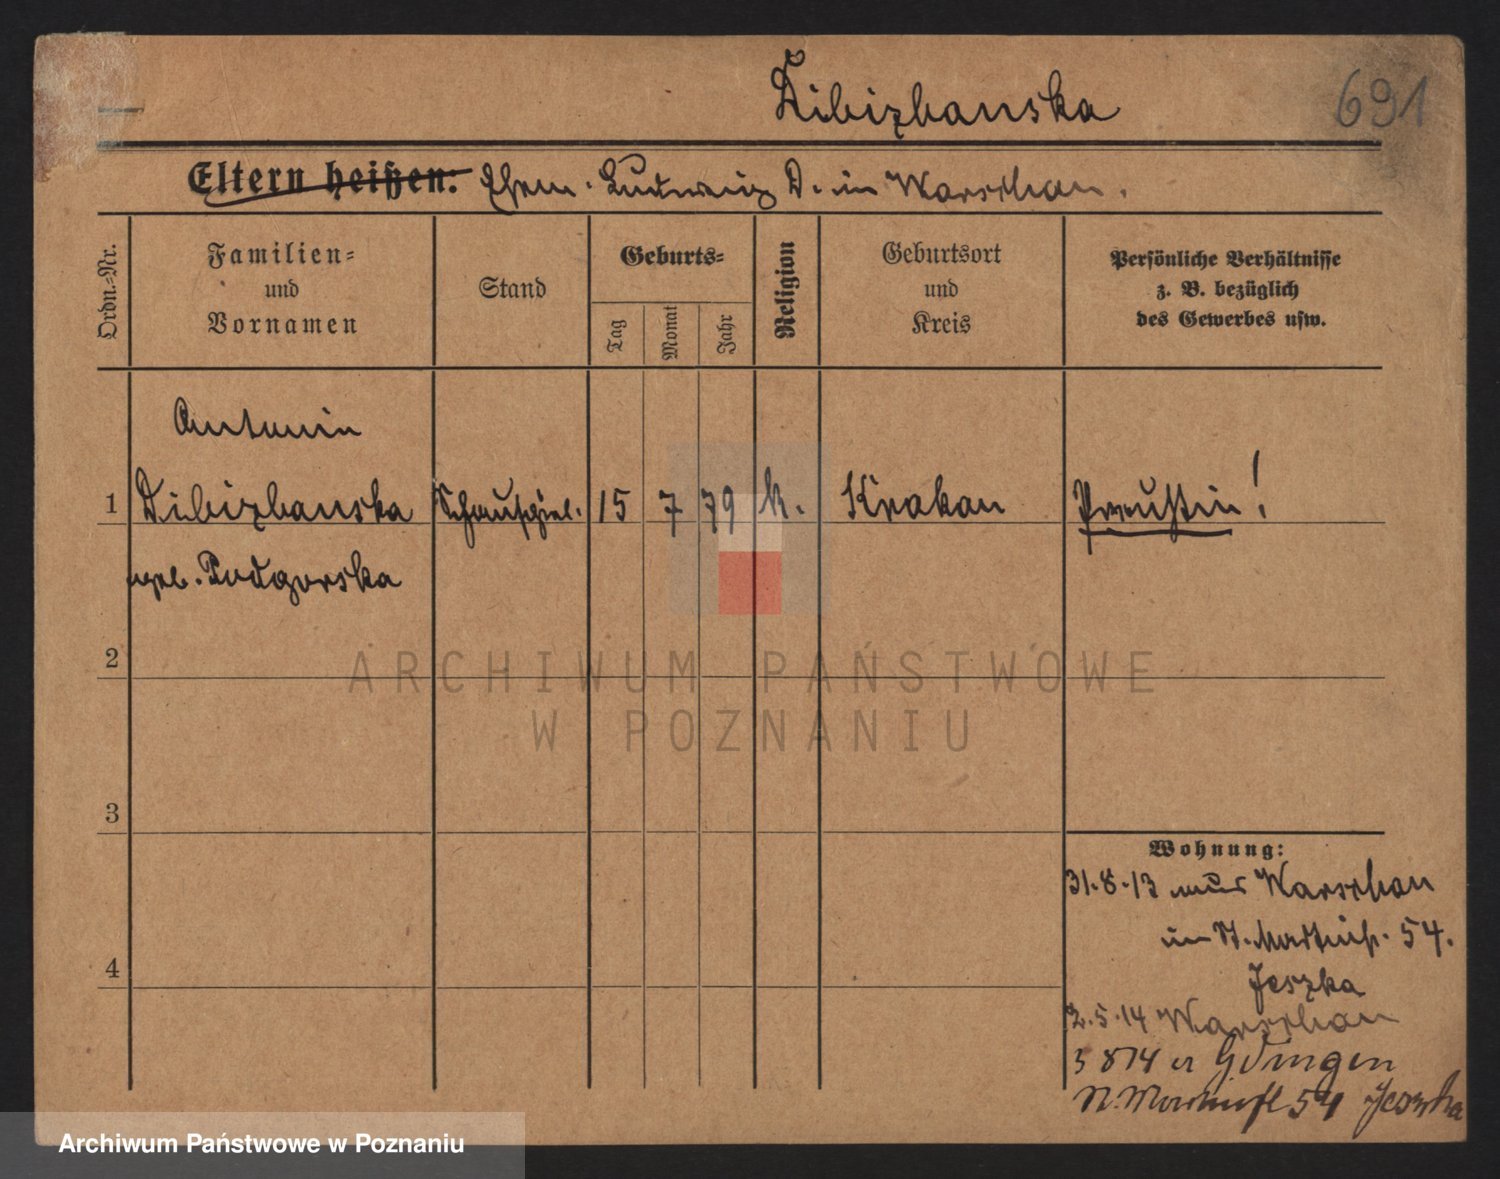 Dibizbanska
691
Eltern heißen: Ehem. Ludwig D. in Warschau.
Ordn.-Nr.
Familien-
und
Vornamen
Stand
Geburts-
Tag
Monat
Jahr
Religion
Geburtsort
und
Kreis
Persönliche Verhältnisse
z. B. bezüglich
des Gewerbes usw.
Antonin
1 Dibizbanska Schauspiel. 15 7 79 k. Krakau Preußin!
geb. Podgorska
2
3
4
Wohnung:
31.8.13 aus Warschau
in St. Martinst. 54.
Jeszka
2.5.14 Warschau
5 8 14 Gdingen
St. Martinst 54 Jeszka
ARCHIWUM PAŃSTWOWE
W POZNANIU
Archiwum Państwowe w Poznaniu